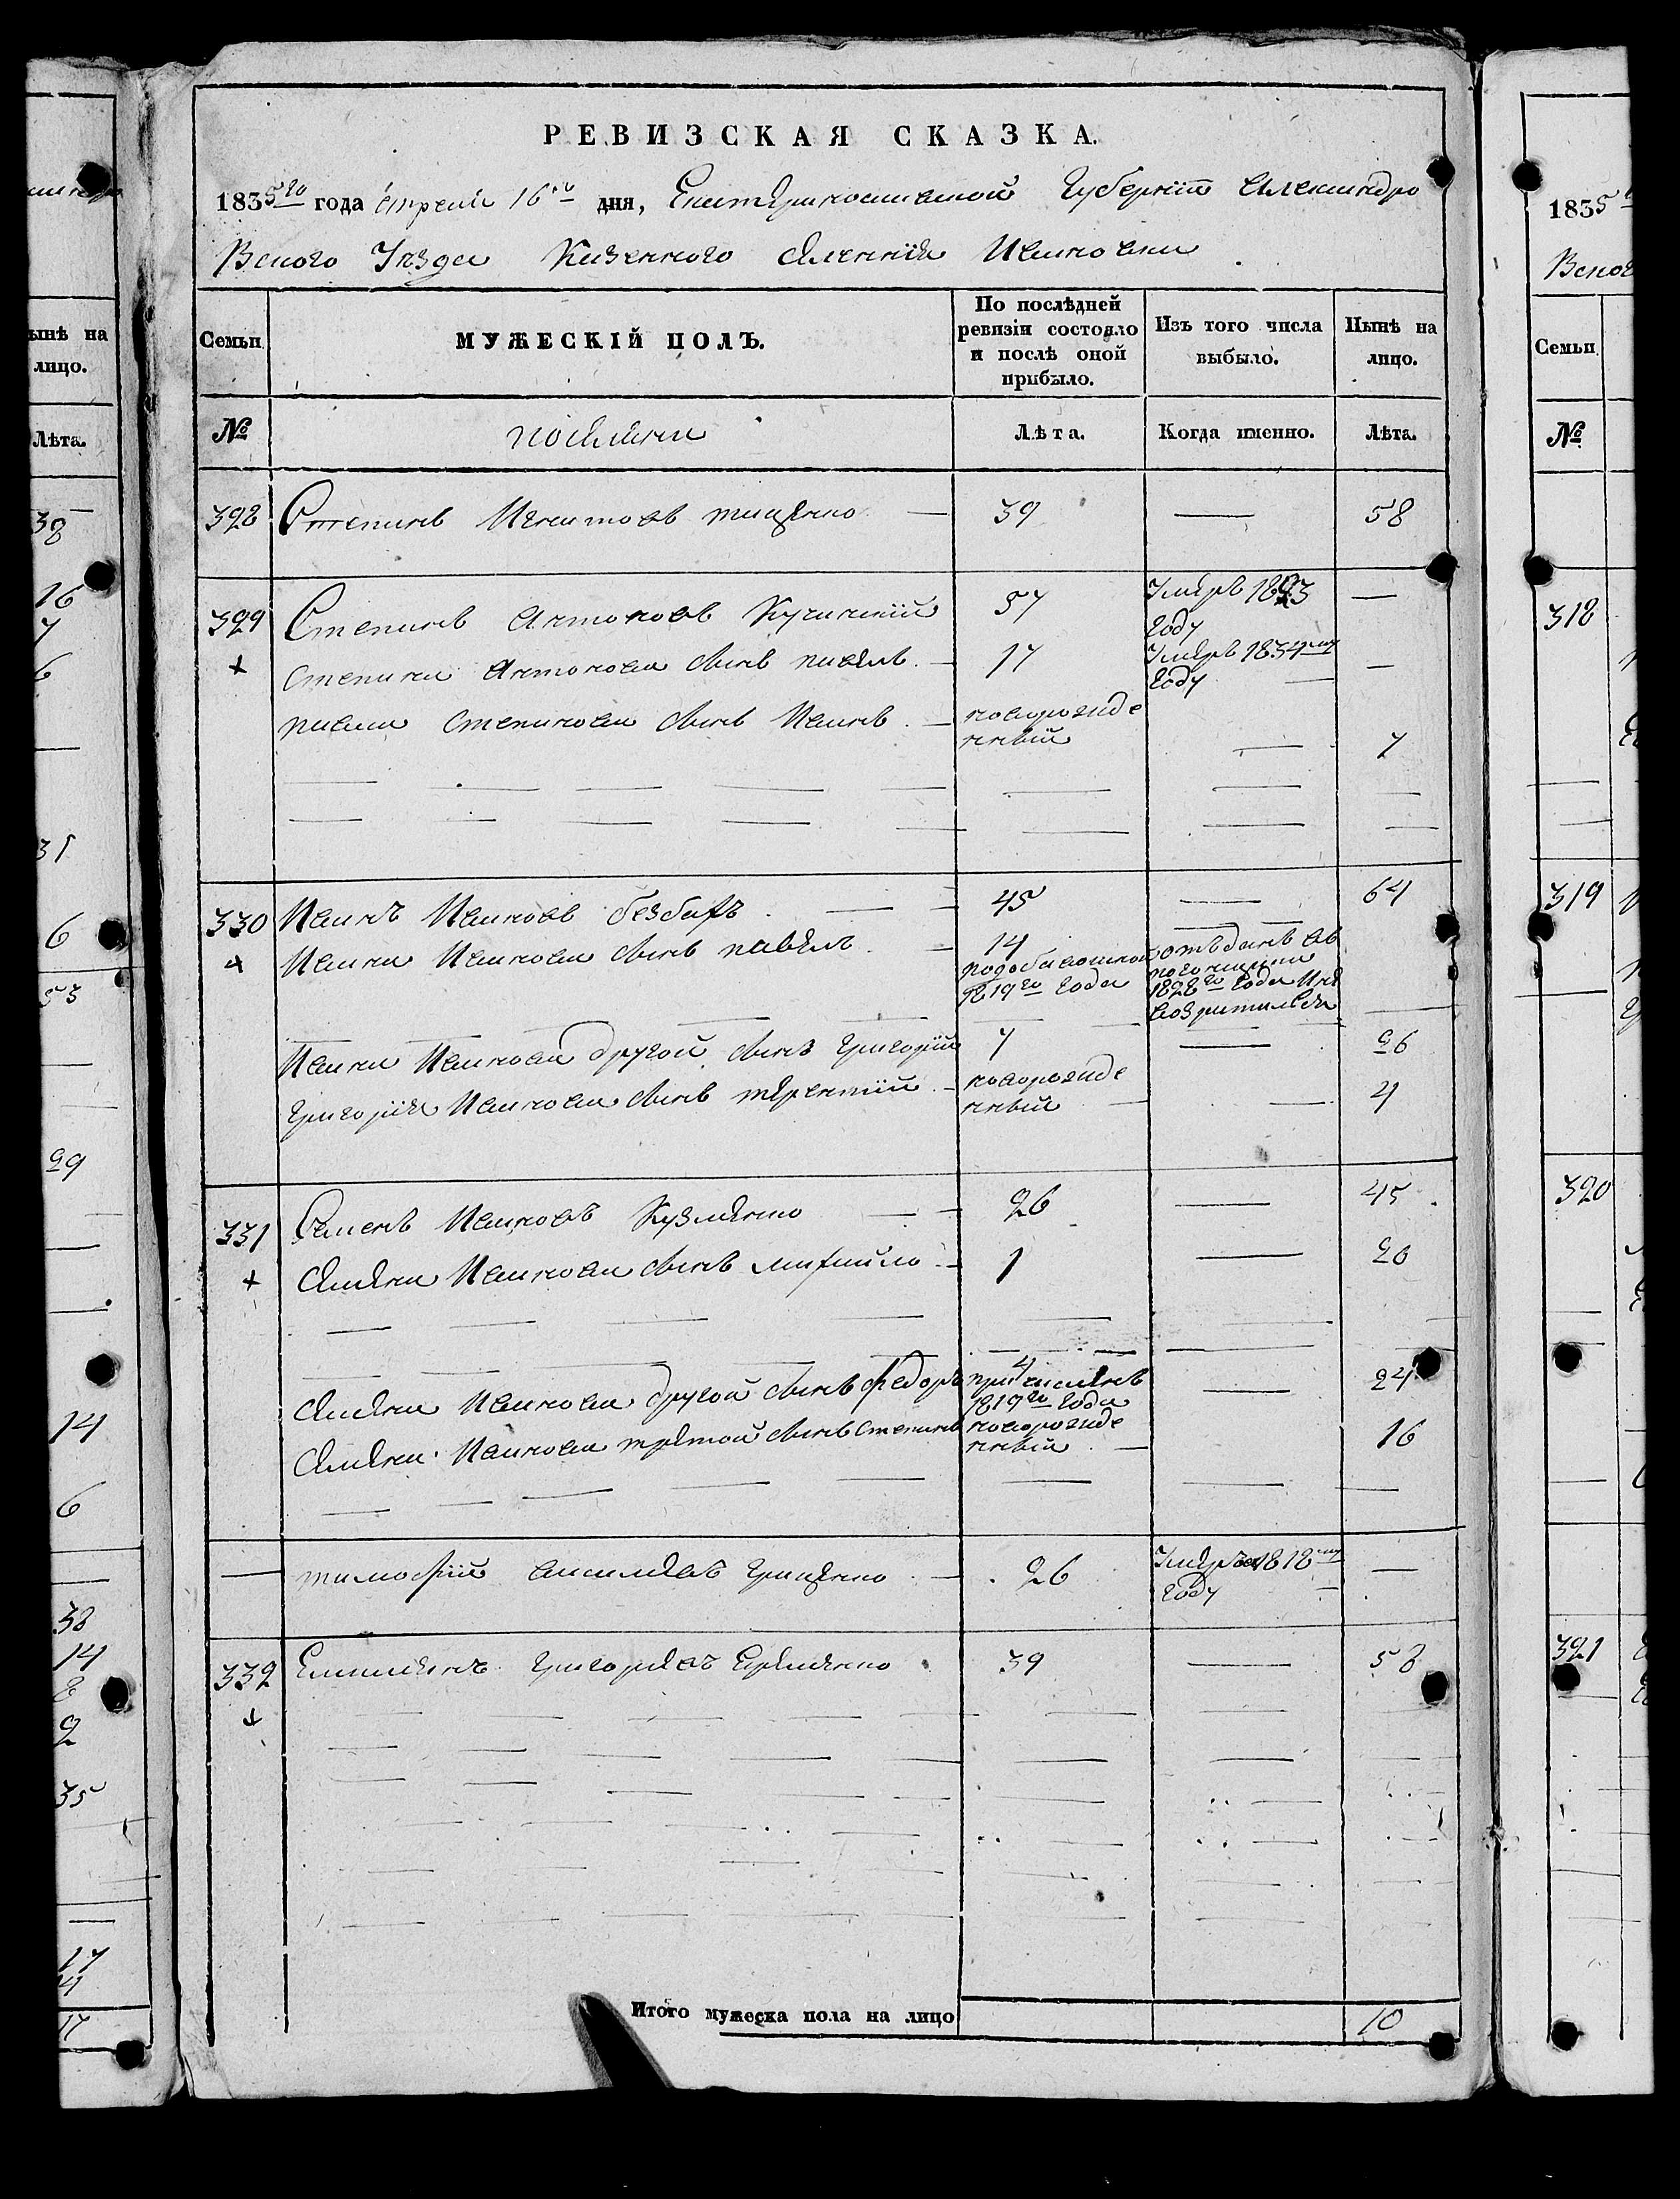 РЕВИЗСКАЯ СКАЗКА.
1835го года Апреля 16го дня, Екатериносланской Губерніи Александро
Вского Уезда Казенного селенія Ивановки
Семьи
МУЖЕСКІЙ ПОЛЪ.
По послѣдней ревизіи состояло и послѣ оной прибыло.
Изъ того числа выбыло.
Нынѣ на лицо.
№
поселяни
Лѣта.
Когда именно.
Лѣта.
328 Степанъ Игнатовъ тищенко 39 — 58
329 Степанъ Антоновъ 57 Умеръ 1823 году —
Степана Антонова сынъ павелъ 17 Умеръ 1834му году —
павла Степанова сынъ Иванъ новорожденный — 7
330 Иванъ Ивановъ безбахъ 45 — 64
Ивана Иванова сынъ павелъ 14
1819го года
отъданъ въ
1828го года
Ивана Иванова другой сынъ григорій 7 — 26
григорія Иванова сынъ терентій новорожденный — 4
331 Семенъ Ивановъ Кузменко 26 — 45
Семена Иванова сынъ михайло 1 — 20
Семена Иванова другой сынъ федоръ 4 причисленъ 1819го года — 24
Семена Иванова третой сынъ Степанъ новорожденный — 16
— тимофій василіевъ грищенко 26 Умеръ 1818му году —
332 Емилиянъ григориевъ Еременко 39 — 58
Итого мужеска пола на лицо 10
1835
Вског
Семьи
№
318
319
320
321
ынѣ на
лицо.
Лѣта.
38
16
7
6
31
6
53
29
14
6
38
14
8
2
35
17